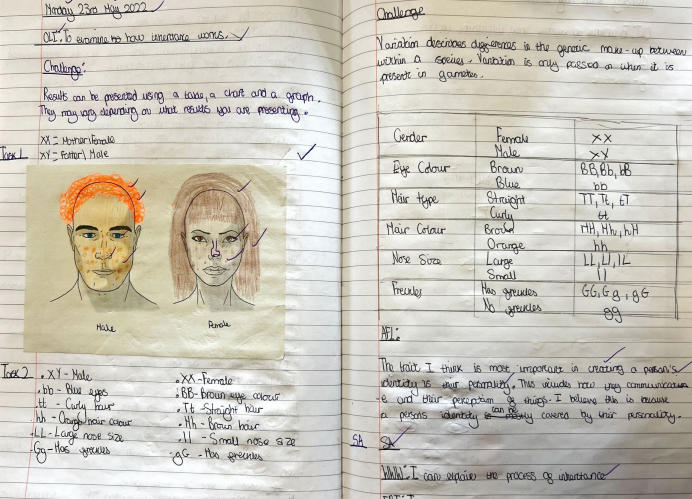 Monday 23rd May 2022
OLI: To examine how inheritance works.
Challenge:
Results can be presented using a table, a chart and a graph.
They may vary depending on what results you are presenting.
XX = Mother/Female
Task 1
XY = Father\ Male
Male
Female
Task 2
• XY - Male
• bb - Blue eyes
• tt - Curly hair
• hh - Orange hair colour
• LL - Large nose size
• Gg - Has freckles
• XX - Female
• BB - Brown eye colour
• Tt - Straight hair
• Hh - Brown hair
• ll - Small nose size
• gG - Has freckles
Challenge
Variation describes differences in the genetic make-up between
within a species. Variation is only passed on when it is
present in gametes.
Gender Female XX
Male XY
Eye Colour Brown BB, Bb, bB
Blue bb
Hair type Straight TT, Tt, tT
Curly tt
Hair Colour Brown HH, Hh, hH
Orange hh
Nose Size Large LL, Ll, lL
Small ll
Freckles Has freckles GG, Gg, gG
No freckles gg
AFL:
The trait I think is most important in creating a person's
identity is their personality. This includes how they communicat
e and their perception of things. I believe this is because
a persons identity can be covered by their personality.
SA
SA
WWW: I can explain the process of inheritance